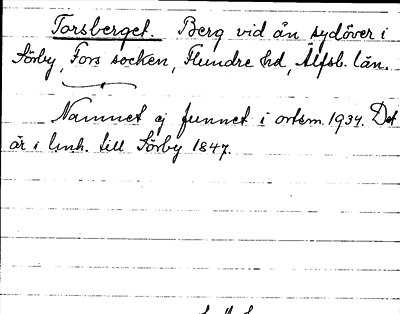 Torsberget. Berg vid ån sydöver i
Sörby, Fors socken, Flundre hd, Älfsb. län.
Namnet ej funnet i ortsm. 1934. Det
är i link. till Sörby 1847.